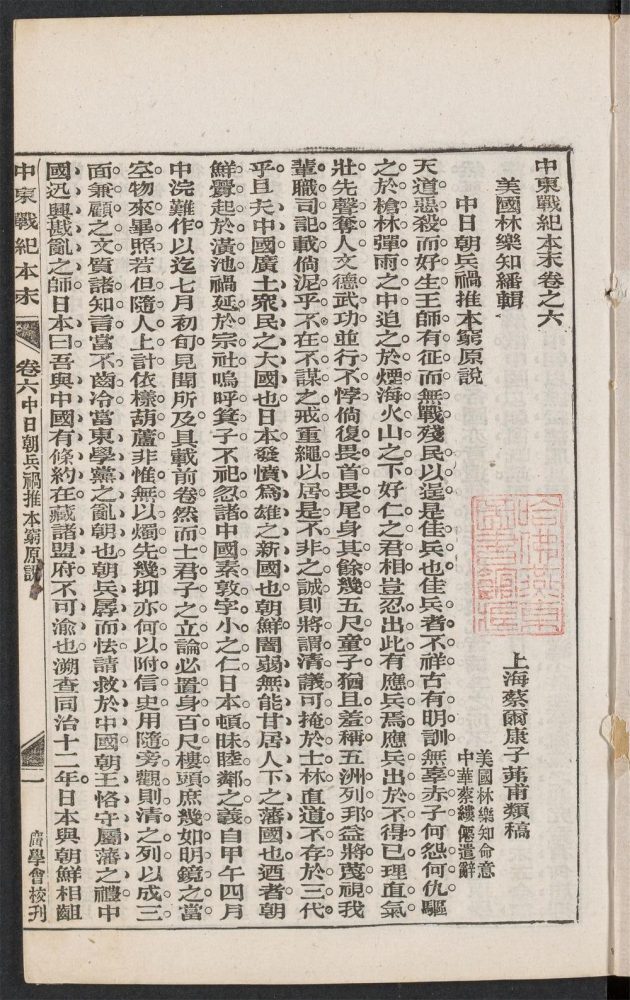 中東戰紀本末卷之六
美國林樂知繙輯
上海蔡爾康子茀甫類稿
中日朝兵禍推本窮原說
美國林樂知命意
中華蔡縷僊遣辭
天道惡殺而好生王師有征而無戰殘民以逞是佳兵也佳兵者不祥古有明訓無辜赤子何怨何仇驅
之於槍林彈雨之中迫之於煙海火山之下好仁之君相豈忍出此有應兵焉應兵出於不得已理直氣
壯先聲奪人文德武功並行不悖倘復畏首畏尾身其餘幾五尺童子猶且羞稱五洲列邦益將蔑視我
輩職司記載倘泥乎不在不謀之戒重繩以居是不非之誠則將謂清議可掩於士林直道不存於三代
乎且夫中國廣土衆民之大國也日本發憤爲雄之新國也朝鮮闇弱無能甘居人下之藩國也迺者朝
鮮釁起於潢池禍延於宗社嗚呼箕子不祀忽諸中國素敦字小之仁日本頓昧睦鄰之義自甲午四月
中浣難作以迄七月初旬見聞所及具載前卷然而士君子之立論必置身百尺樓頭庶幾如明鏡之當
空物來畢照若但隨人上計依樣葫蘆非惟無以燭先幾抑亦何以附信史用隨旁觀則清之列以成三
面兼顧之文質諸知言當不齒冷當東學黨之亂朝也朝兵孱而怯請救於中國朝王恪守屬藩之禮中
國迅興戡亂之師日本曰吾與中國有條約在藏諸盟府不可渝也溯查同治十二年日本與朝鮮相齟
中東戰紀本末
卷六中日朝兵禍推本窮原說
一
廣學會校刊